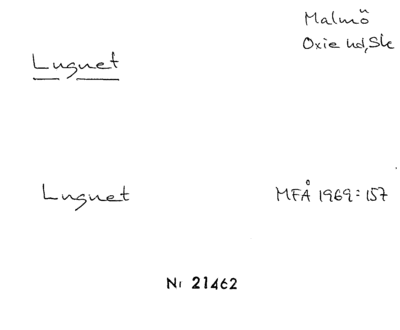 Malmö
Oxie hd, Sk
Lugnet
Lugnet
MFÅ 1969:157
Nr 21462